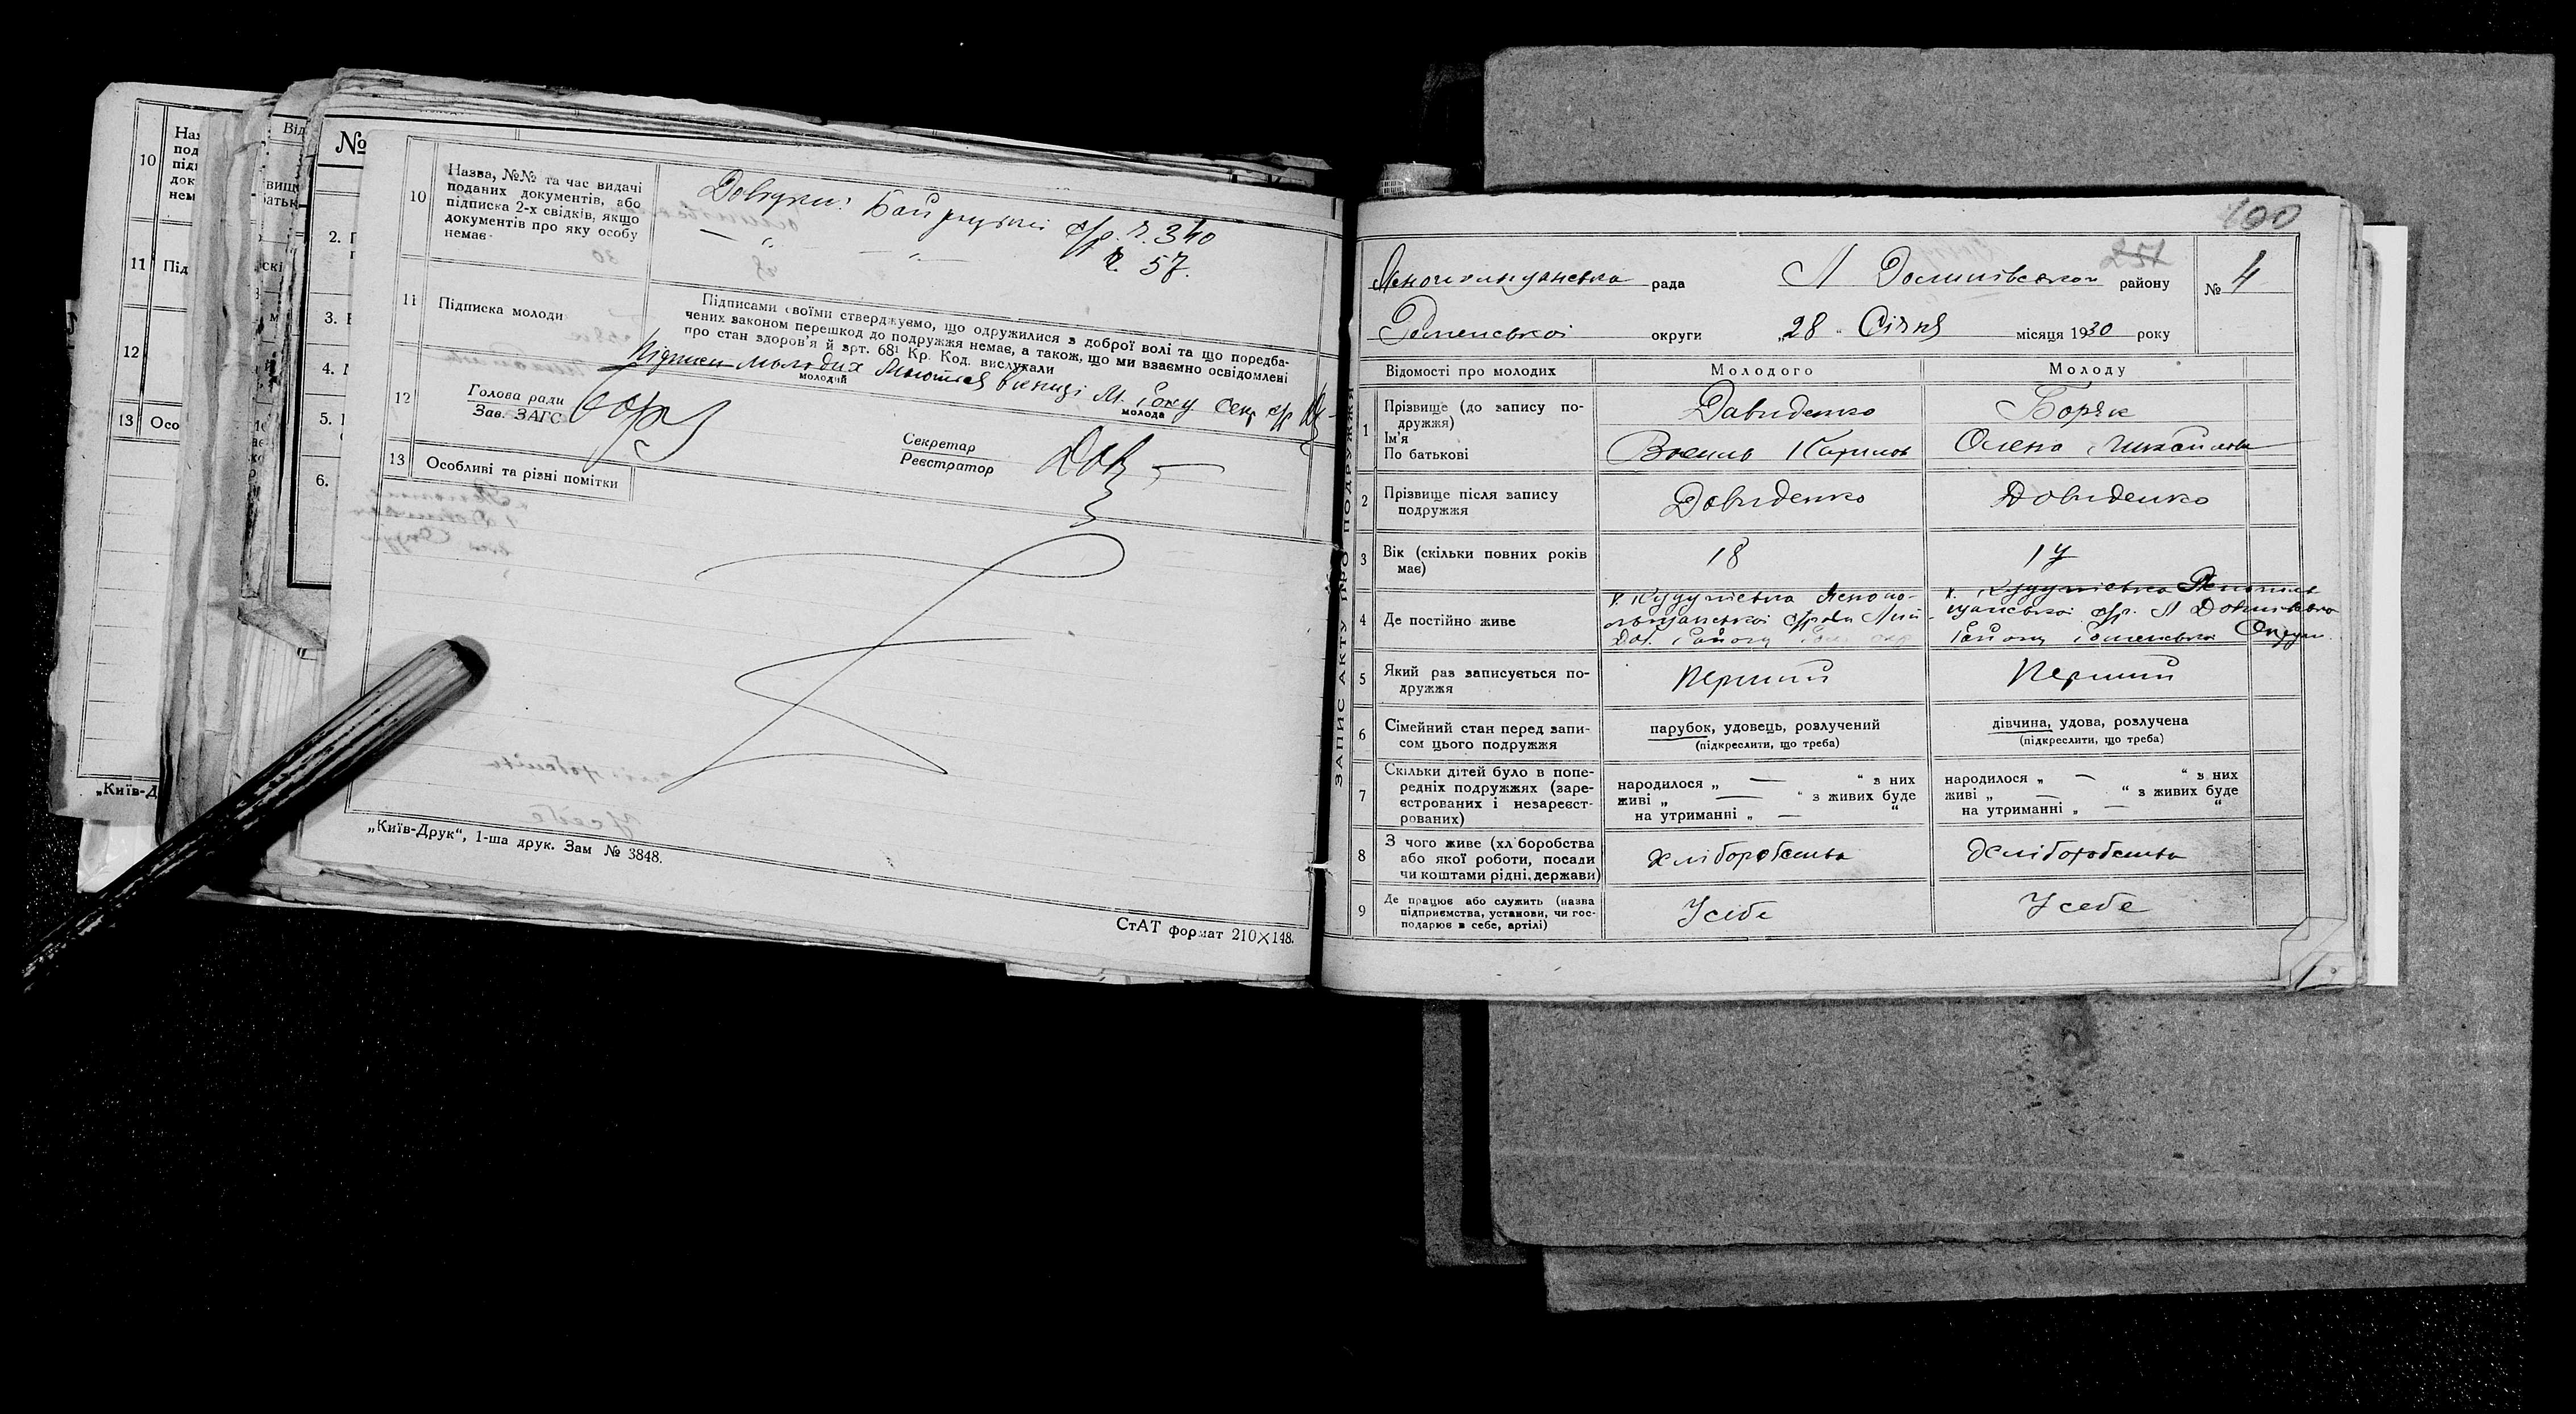 10
11
12
13
Під
Осо
„Київ-Д
Від
№
2.
3.
4.
5.
6.
10
Назва, №№ та час видачі
поданих документів, або
підписка 2-х свідків, якщо
документів про яку особу
немає
Довідки: с/р. ч. 340
ч. 57.
11
Підписка молоди
Підписами своїми стверджуємо, що одружилися з доброї волі та що поредба-
чених законом перешкод до подружжя немає, а також, що ми взаємно освідомлені
про стан здоров'я й врт. 68¹ Кр. Код. вислухали
Підписи молодих
молодий
молода
12
Голова ради
Зав. ЗАГС
Секретар
Реєстратор
13
Особливі та різні помітки
„Київ-Друк“, 1-ша друк. Зам № 3848.
СтАТ формат 210×148.
ЗАПИС АКТУ ПРО ПОДРУЖЖЯ
100
251
рада
району
№ 4
Роменської округи „28 Січня місяця 1930 року
Відомості про молодих
Молодого
Молоду
1
Прізвище (до запису по-
дружжя)
Ім'я
По батькові
Давиденко
Боряк
Василь
Олена Михайлова
2
Прізвище після запису
подружжя
Давиденко
Давиденко
3
Вік (скільки повних років
має)
18
17
4
Де постійно живе
району Роменської Округи
5
Який раз записується по-
дружжя
Перший
Перший
6
Сімейний стан перед запи-
сом цього подружжя
парубок, удовець, розлучений
(підкреслити, що треба)
дівчина, удова, розлучена
(підкреслити, що треба)
7
Скільки дітей було в попе-
редніх подружжях (заре-
єстрованих і незареєст-
рованих)
народилося „ — “ з них
живі „ — “ з живих буде
на утриманні „ — “
народилося „ — “ з них
живі „ — “ з живих буде
на утриманні „ — “
8
З чого живе (хліборобства
або якої роботи, посади
чи коштами рідні, держави)
хліборобства
хліборобства
9
Де працює або служить (назва
підприємства, установи, чи гос-
подарює в себе, артілі)
У себе
У себе